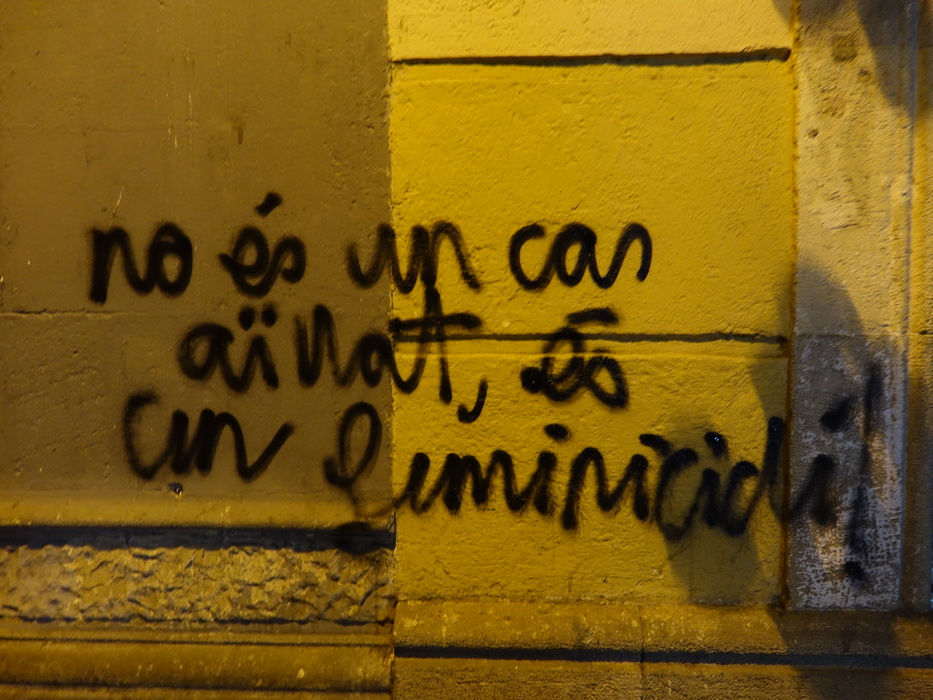 no és un cas
aïllat, és
un feminicidi!